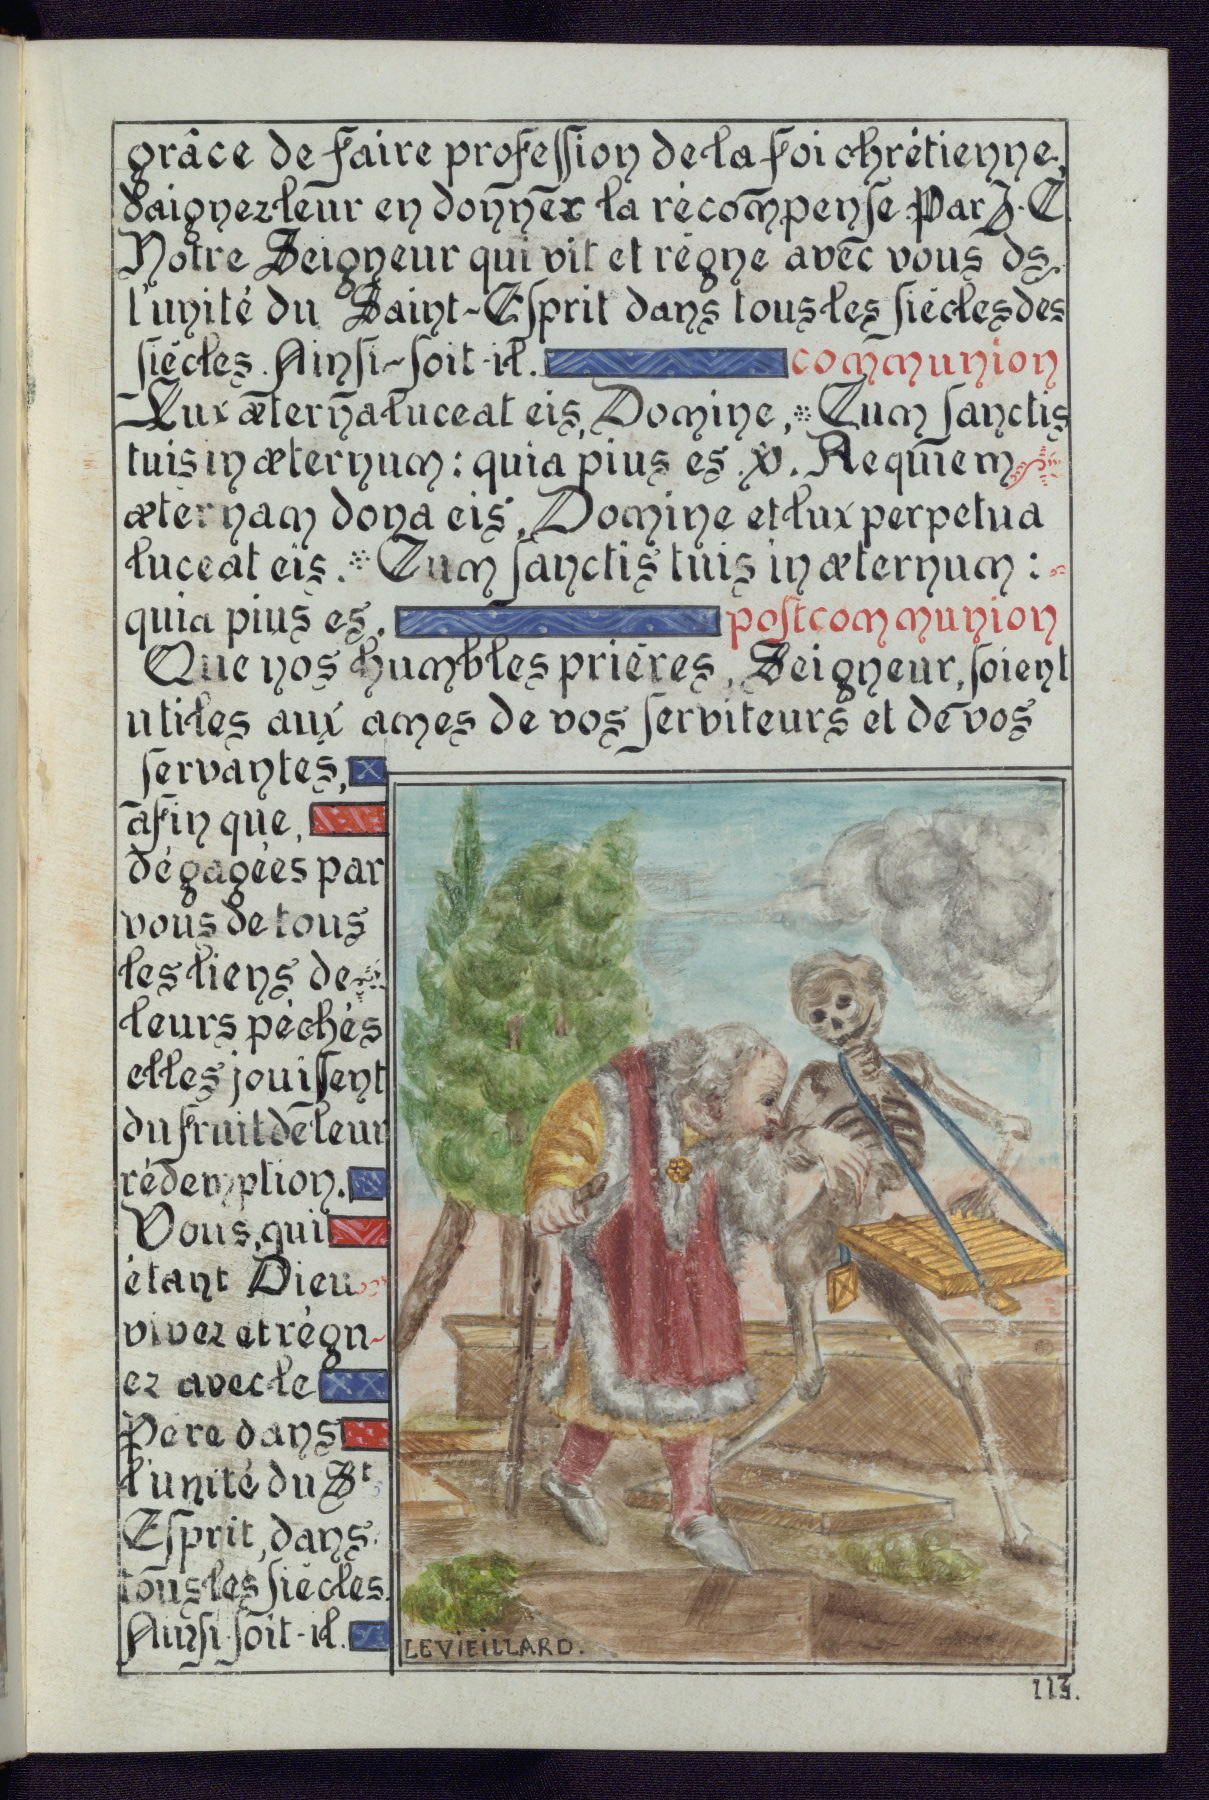 grâce de faire profeſſion de la foi chrétienne,
daignez leur en donner la récompenſe. Par J. C.
Notre Seigneur qui vit et règne avec vous ds.
l'unité du Saint-Eſprit dans tous les ſiécles des
ſiécles. Ainſi-ſoit-il. communion
Lux æterna luceat eis, Domine, * Cum ſanctis
tuis in æternum: quia pius es. ℣. Requiem
æternam dona eis, Domine et lux perpetua
luceat eis. * Cum ſanctis tuis in æternum:
quia pius es. poſtcommunion
Que nos humbles priéres, Seigneur, ſoient
utiles aux ames de vos ſerviteurs et de vos
ſervantes,
afin que,
dégagées par
vous de tous
les liens de
leurs péchés
elles jouiſſent
du fruit de leur
rédemption.
Vous, qui
étant Dieu
vivez et régn-
ez avec le
Père dans
l'unité du St
Eſprit, dans
tous les ſiécles.
Ainſi-ſoit-il.
LE VIEILLARD.
113.